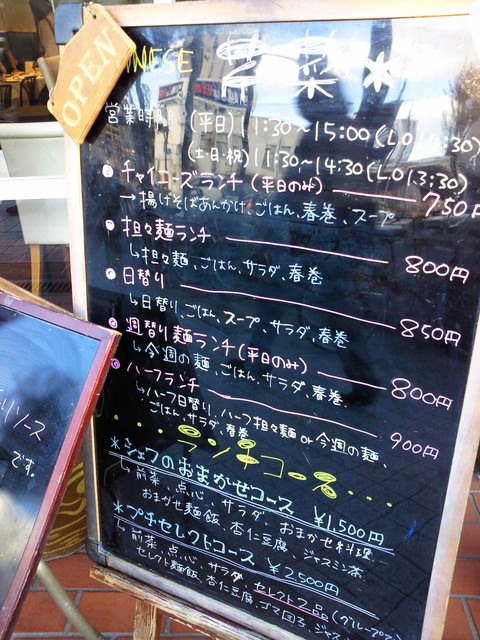 OPEN
CHINESE 菜
営業時間 (平日) 11:30〜15:00 (LO14:30)
(土・日・祝) 11:30〜14:30 (LO13:30)
チャイニーズランチ (平日のみ) 750円
→揚げそばあんかけ、ごはん、春巻、スープ
担々麺ランチ 800円
↳担々麺、ごはん、サラダ、春巻
日替り 850円
↳日替り、ごはん、スープ、サラダ、春巻
週替り麺ランチ(平日のみ) 800円
↳今週の麺、ごはん、サラダ、春巻
ハーフランチ 900円
↳ハーフ日替り、ハーフ担々麺 or 今週の麺、
ごはん、サラダ、春巻
・・・・ランチコース・・・
*シェフのおまかせコース ¥1,500円
↳前菜、点心、サラダ、おまかせ料理
おまかせ麺飯、杏仁豆腐、ジャスミン茶
*プチセレクトコース ¥2,500円
↳前菜、点心、サラダ、セレクト2品(グループ
セレクト麺飯、杏仁豆腐、ゴマ団子、ジャス
リソース
です。